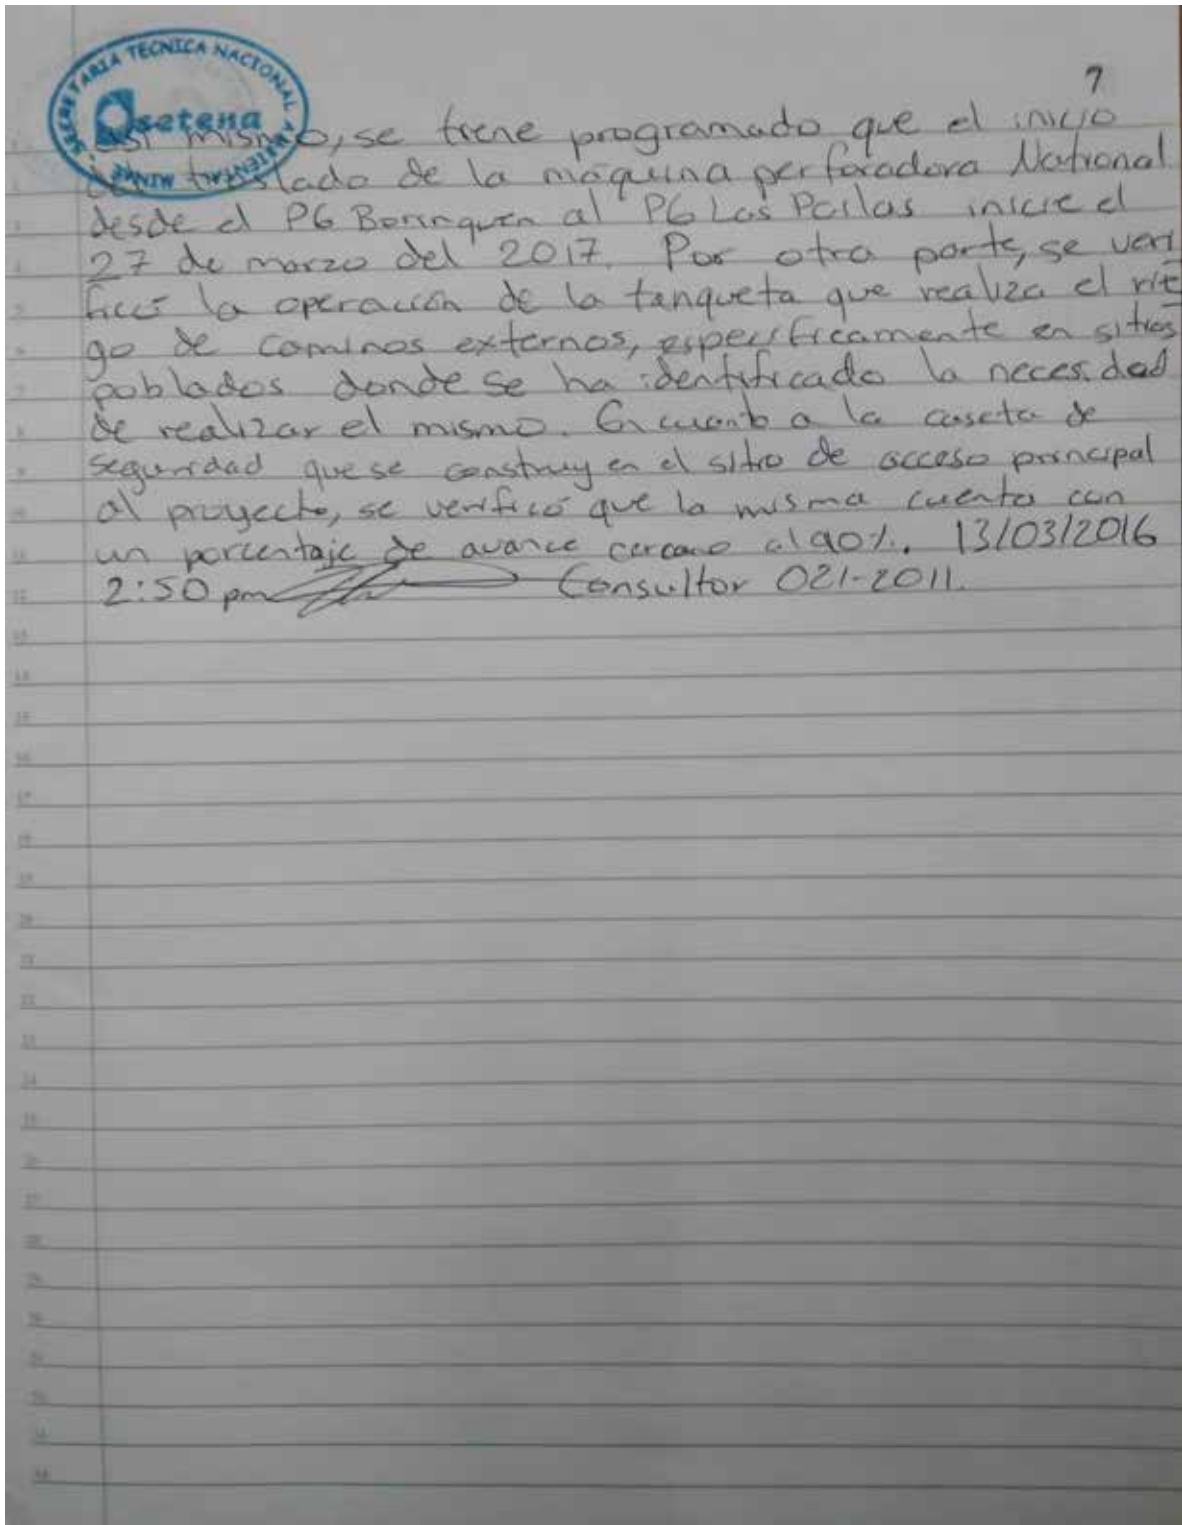 SECRETARIA TECNICA NACIONAL AMBIENTAL - MINAE
setena
7
Así mismo, se tiene programado que el inicio
del traslado de la máquina perforadora National
desde el PG Borinquen al PG Las Pailas inicie el
27 de marzo del 2017. Por otra parte, se veri
ficó la operación de la tanqueta que realiza el rie
go de caminos externos, específicamente en sitios
poblados donde se ha identificado la necesidad
de realizar el mismo. En cuanto a la caseta de
seguridad que se construy en el sitio de acceso principal
al proyecto, se verificó que la misma cuenta con
un porcentaje de avance cercano al 90%. 13/03/2016
2:50 pm Consultor 021-2011.